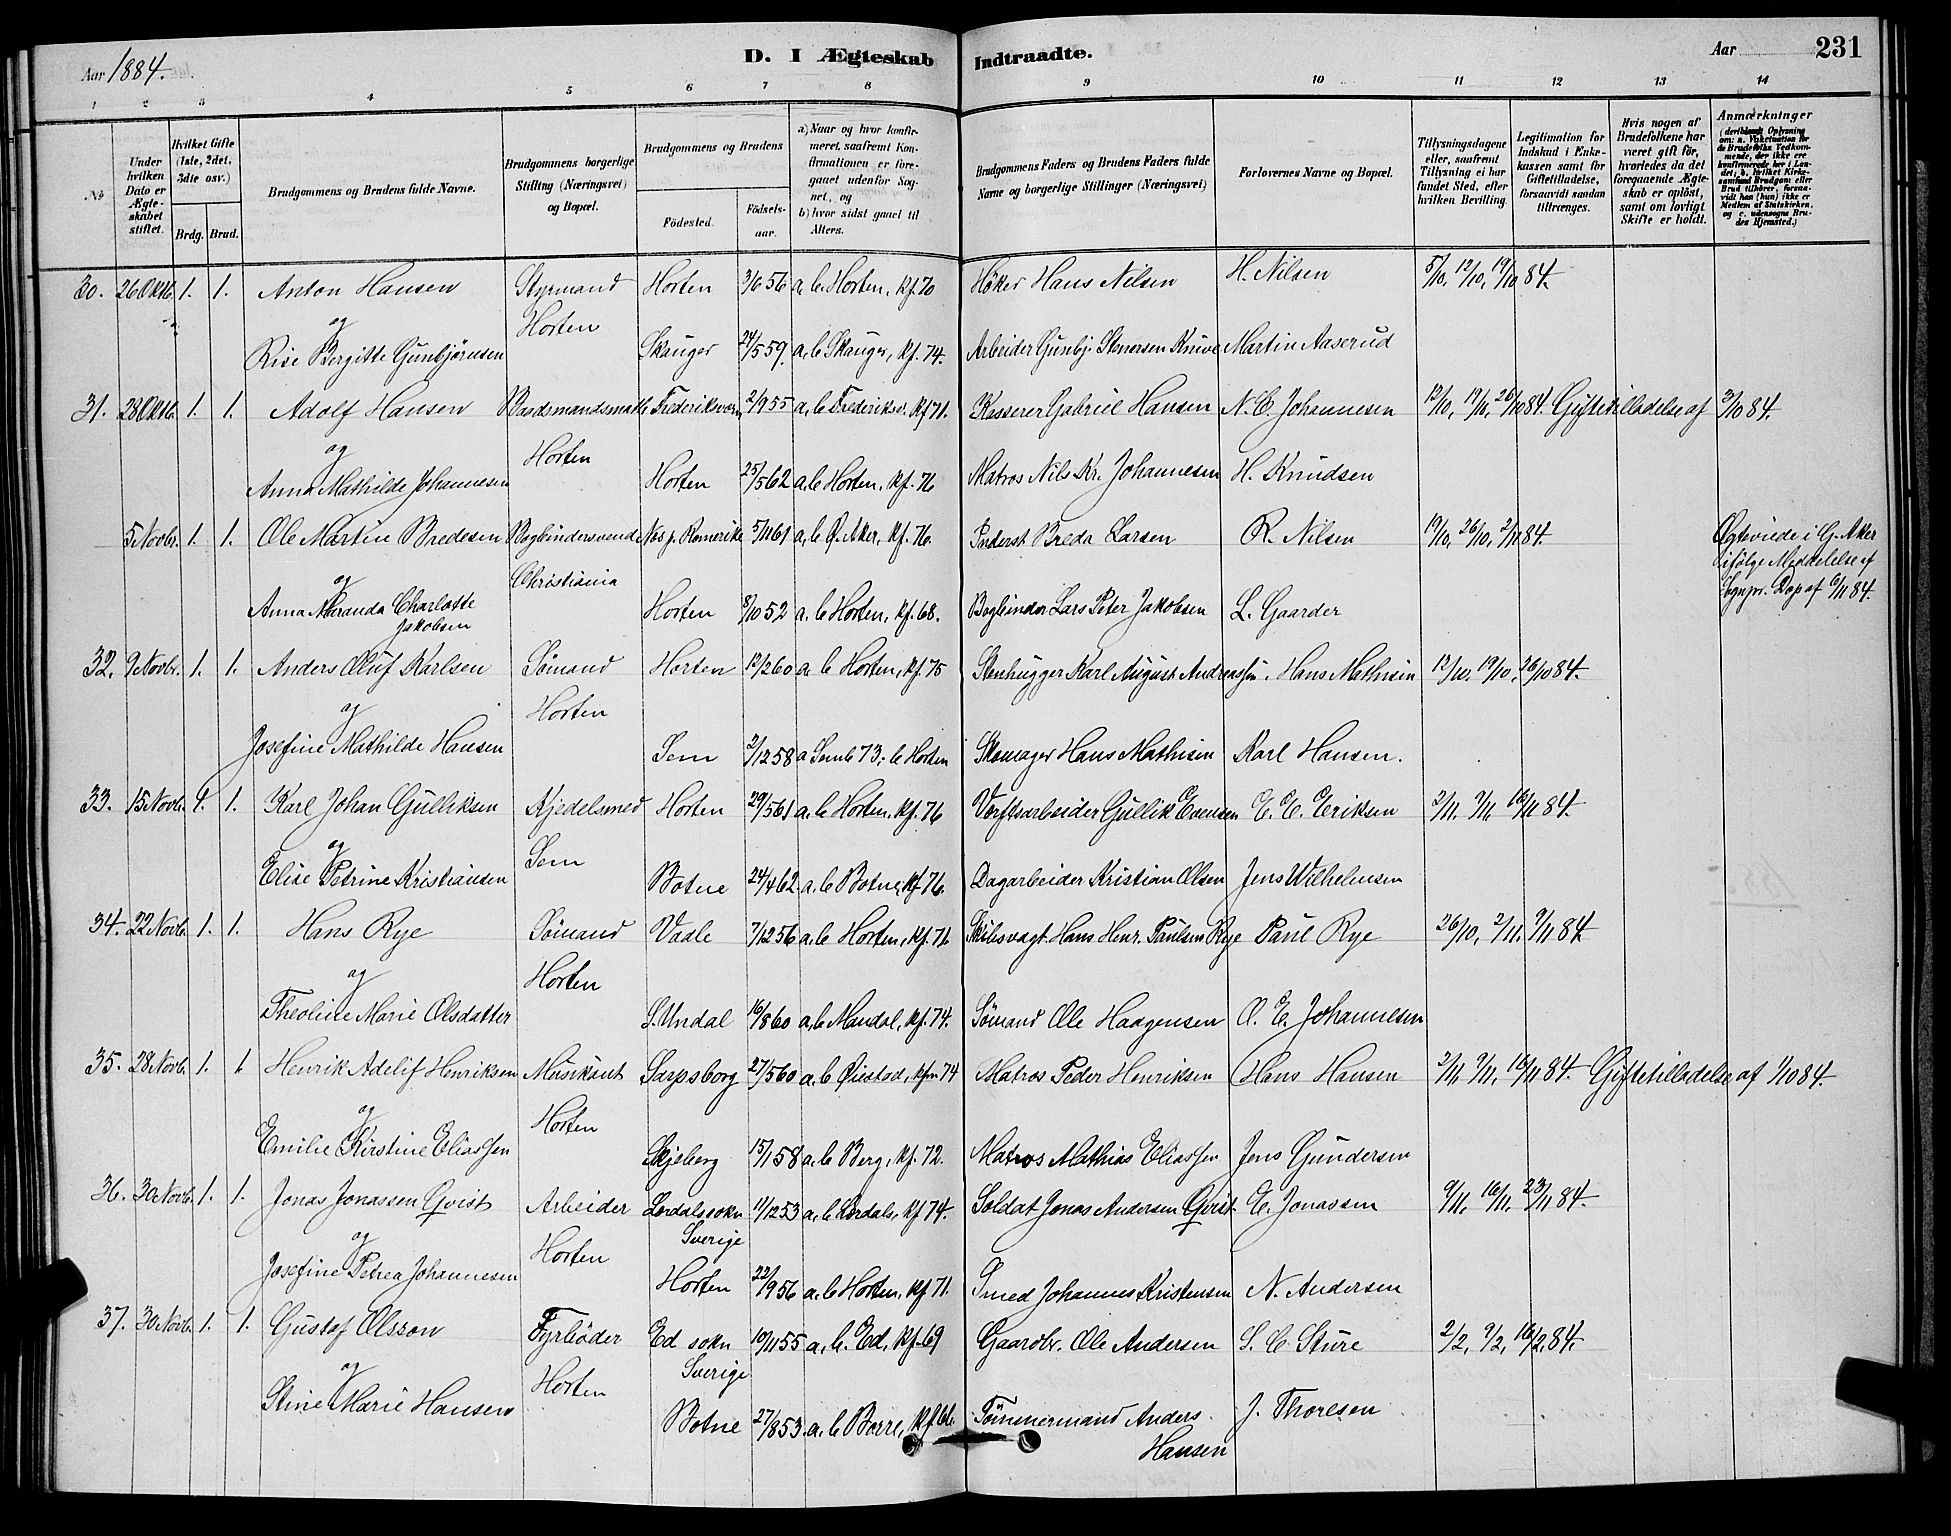 Aar 1884.
D. I Ægteskab Indtraadte.
Aar 231
1 2 3 4 5 6 7 8 9 10 11 12 13 14
No
Under hvilken Dato er Ægteskabet stiftet.
Hvilket Gifte (1ste, 2det, 3die osv.)
Brdg. Brud.
Brudgommens og Brudens fulde Navne.
Brudgommens borgerlige Stilling (Næringsvei) og Bopæl.
Brudgommens og Brudens
Fødested.
Fødselsaar.
a) Naar og hvor konfirmeret, saafremt Konfirmationen er foregaaet udenfor Sognet, og
b) hvor sidst gaaet til Alters.
Brudgommens Faders og Brudens Faders fulde Navne og borgerlige Stillinger (Næringsvei)
Forlovernes Navne og Bopæl.
Tillysningsdagene eller, saafremt Tillysning ei har fundet Sted, efter hvilken Bevilling.
Legitimation for Indskud i Enkekassen samt for Giftetilladelse, forsaavidt saadan tiltrænges.
Hvis nogen af Brudefolkene har været gift før, hvorledes da det foregaaende Ægteskab er opløst, samt om lovligt Skifte er holdt.
Anmærkninger
30. 26 Oktb. 1. 1. Anton Hansen Styrmand Horten 3/6 56 a. b. Horten, kf. 70 Høker Hans Nilsen H. Nilsen 5/10, 12/10, 19/10 84.
og Horten
Rise Bergitte Gunbjørnsen Skauger 24/5 59. a. b. Skauger, kf. 74. Arbeider Gunbj. Stenersen Knive Martin Aaserud
31. 28 Oktb. 1. 1. Adolf Hansen Baadsmandsmath Frederiksværn 2/9 55 a. b. Frederiksv. kf 71. Kasserer Gabriel Hansen N. C. Johannesen 12/10, 19/10, 26/10 84. Giftetilladelse af 3/10 84.
og Horten
Anna Mathilde Johannesen Horten 25/5 62 a. b. Horten, kf. 76 Matros Nils Kr. Johannesen H. Knudsen
5 Novbr. 1. 1. Ole Martin Bredesen Bogbindersvend Nes p. Romerike 5/11 61 a. b. Ø. Aker, kf. 76. Inderst Breda Larsen R. Nilsen 19/10, 26/10, 2/11 84. Ægteviede i G. Aker
og Christiania ifølge Meddelelse af
Anna Miranda Charlotte Jakobsen Horten 8/10 52 a. b. Horten, kf. 68. Bogbinder Lars Peter Jakobsen L. Gaarder Sognpr. Dop af 6/11 84.
32. 9 Novbr. 1. 1. Anders Oluf Karlsen Sømand Horten 13/2 60 a. b. Horten, kf. 75 Stenhugger Karl August Andreassen. Hans Mathisen 12/10, 19/10, 26/10 84.
og Horten
Josefine Mathilde Hansen Sem 2/12 58 a Sem 73; b Horten Skomager Hans Mathisen Karl Hansen.
33. 15 Novb. 1. 1. Karl Johan Gulliksen Kjedelsmed Horten 29/5 61 a. b. Horten, kf. 76 Verftsarbeider Gullik Evensen E. E. Eriksen 2/11, 9/11, 16/11 84.
og Sem
Elise Petrine Kristiansen Botne 24/4 62 a. b. Botne, kf 76. Dagarbeider Kristian Olsen Jens Wilhelmsen
34. 22 Novb. 1. 1. Hans Rye Sømand Vaale 7/12 56 a. b. Horten, kf. 71 Skibsvagt. Hans Henr. Paulsen Rye Paul Rye 26/10, 2/11, 9/11 84
og Horten
Theoline Marie Olsdatter S. Undal 16/8 60 a. b. Mandal, kf. 74. Sømand Ole Haagensen O. E. Johannesen
35. 28 Novb. 1. 1 Henrik Adelif Henriksen Musikant Sarpsborg 27/5 60 a. b. Øiestad, kfm 74 Matros Peder Henriksen Hans Hansen 2/11, 9/11, 16/11 84. Giftetilladelse af 1/10 84.
og Horten
Emilie Kirstine Eliassen Skjeberg 15/1 58 a. b. Berg, kf. 72. Matros Mathias Eliassen Jens Gundersen
36. 30 Novb. 1. 1. Jonas Jonassen Qvist Arbeider Lerdalssokn 11/12 53 a. b. Lerdals, kf 74. Soldat Jonas Andersen Qvist. E. Jonassen 9/11, 16/11, 23/11 84.
og Horten Sverige
Josefine Petrea Johannesen Horten 22/9 56 a. b. Horten, kf 71. Smed Johannes Kristensen N. Andersen
37. 30 Novb. 1. 1. Gustaf Olsson Fyrbøder Ed sokn 10/11 55 a. b. Ed, kf. 69 Gaardbr. Ole Andersen S. C. Sture 2/2, 9/2, 16/2 84.
og Horten Sverige
Stine Marie Hansen Botne 27/8 53. a. b. Borre, kf. 66. Tømmermand Anders Hansen J. Thoresen